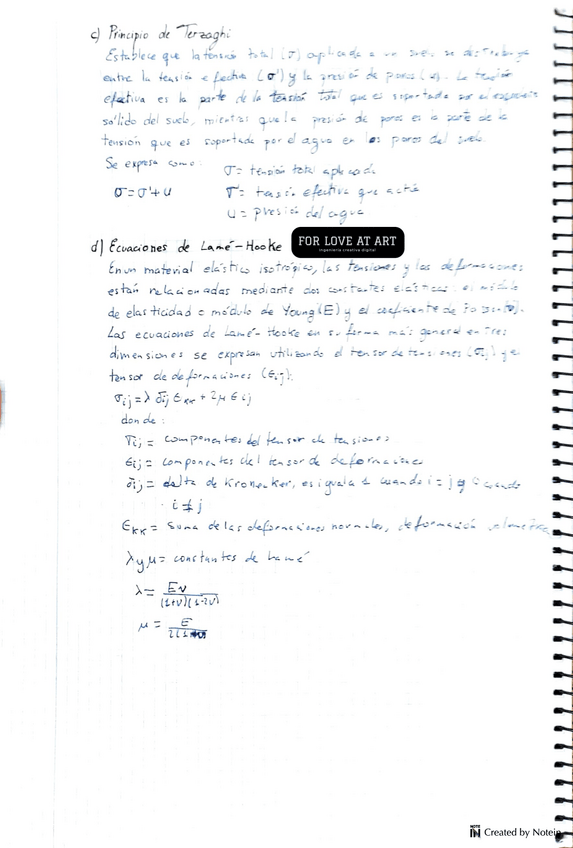 c) Principio de Terzaghi
Establece que la tensión total (σ) aplicada a un suelo se
entre la tensión efectiva (σ') y la presión de poros (u). La tensión
efectiva es la parte de la tensión total que es soportada por el esqueleto
sólido del suelo, mientras que la presión de poros es la parte de la
tensión que es soportada por el agua en los poros del suelo.
Se expresa como:
σ = tensión total aplicada
σ = σ' + u
σ' = tensión efectiva que actúa
u = presión del agua
d) Ecuaciones de Lamé-Hooke
FOR LOVE AT ART
ingeniería creativa digital
En un material elástico isotrópico, las tensiones y las deformaciones
están relacionadas mediante dos constantes elásticas: el módulo
de elasticidad o módulo de Young (E) y el coeficiente de Poisson (ν).
Las ecuaciones de Lamé-Hooke en su forma más general en tres
dimensiones se expresan utilizando el tensor de tensiones (σij) y el
tensor de deformaciones (εij):
σij = λ δij εkk + 2μ εij
donde:
σij = componentes del tensor de tensiones
εij = componentes del tensor de deformaciones
δij = delta de Kronecker, es igual a 1 cuando i = j y 0 cuando
i ≠ j
εkk = suma de las deformaciones normales, deformación volumétrica
λ y μ = constantes de Lamé
λ = Eν / (1+ν)(1-2ν)
μ = E / 2(1+ν)
NOTE IN Created by Notein